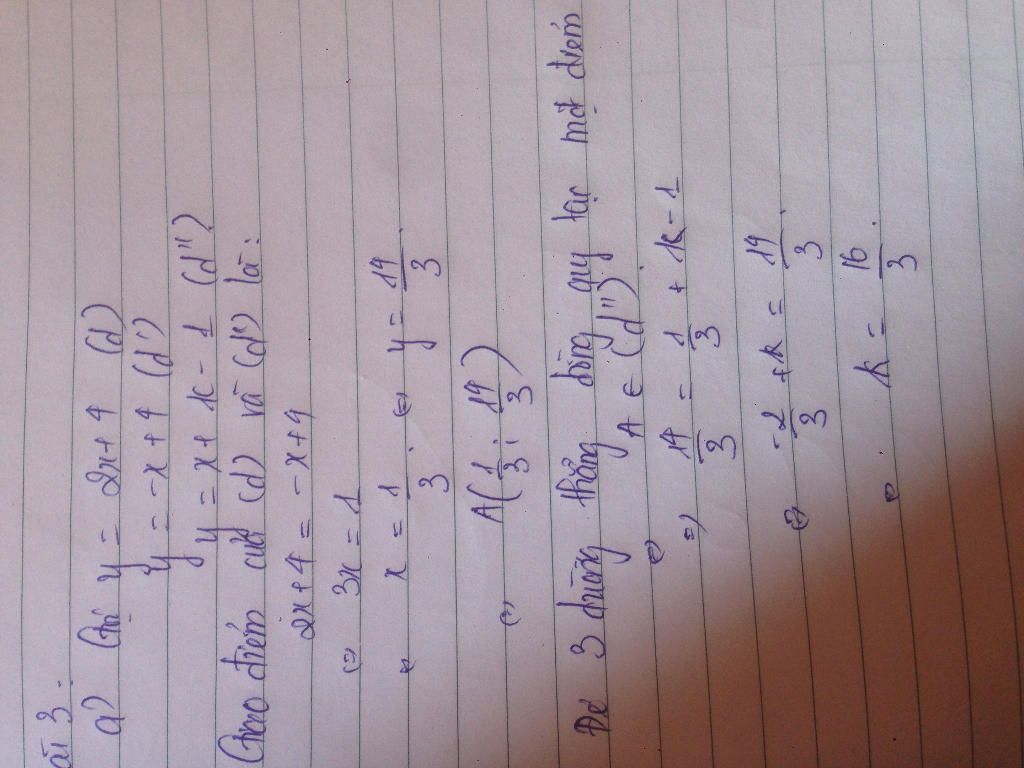 ài 3:
a) Cho y = 2x+4 (d)
y = -x+4 (d')
y = x + k - 1 (d'')
Giao điểm của (d) và (d') là:
2x+4 = -x+4
(=) 3x = 1
(=) x = 1/3 ; (=) y = 14/3.
(=) A(1/3 ; 14/3)
Để 3 đường thẳng đồng quy tại một điểm
(=) A ∈ (d'')
(=) 14/3 = 1/3 + k - 1
(=) -2/3 + k = 14/3.
(=) k = 16/3.